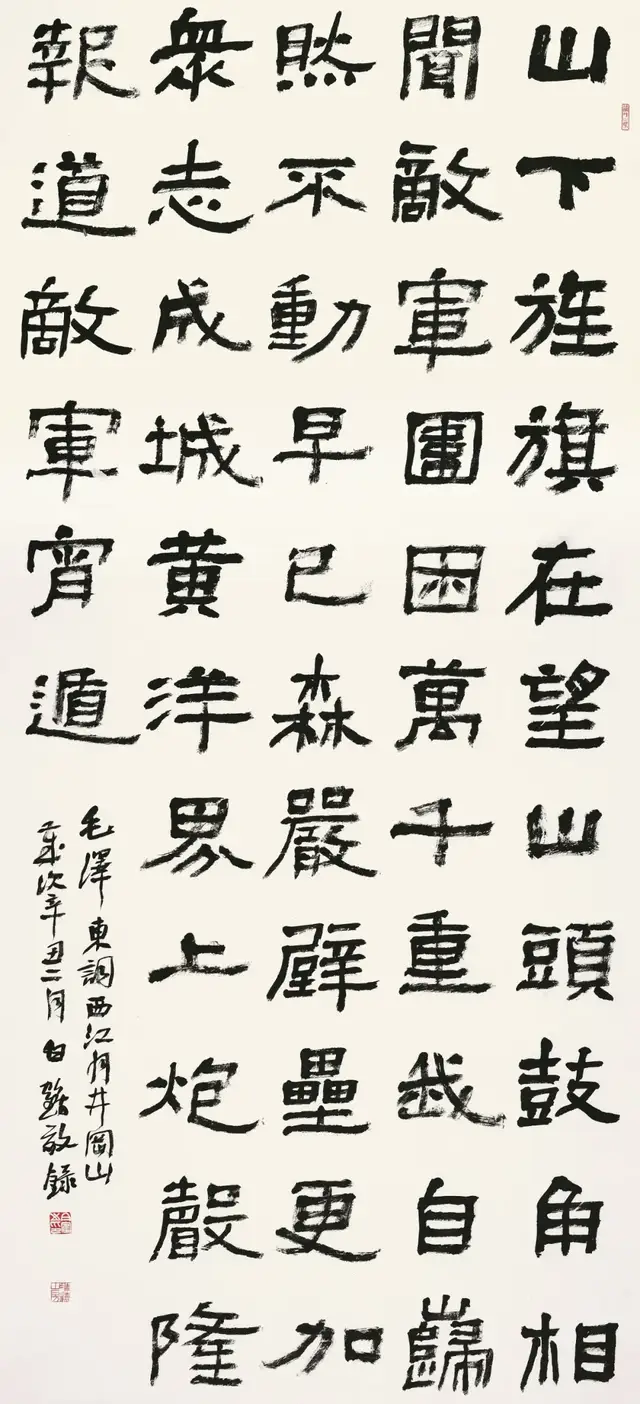 山下旌旗在望山頭鼓角相
聞敵軍圍困萬千重我自巋
然不動早已森嚴壁壘更加
衆志成城黄洋界上炮聲隆
報道敵軍宵遁
毛澤東詞西江月井岡山
歲次辛丑二月白鶴敬錄